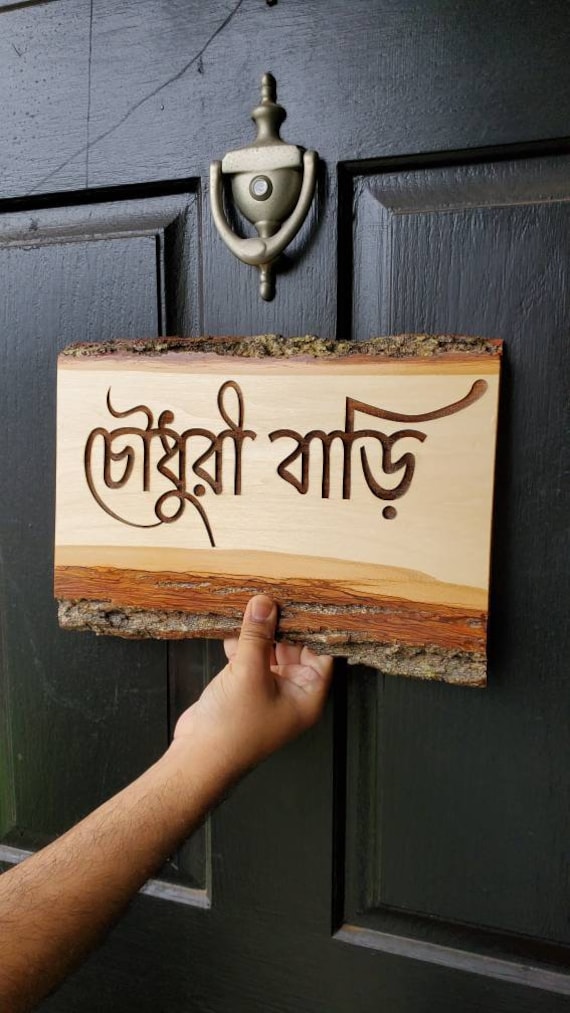 চৌধুরী বাড়ি